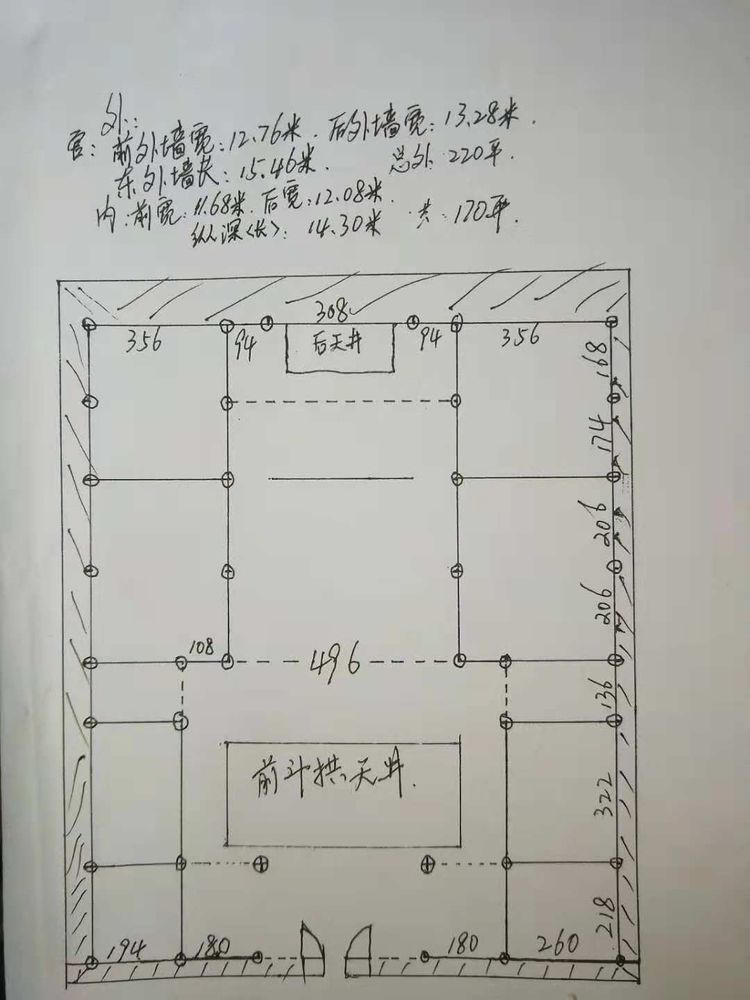 外:
宫: 前外墙宽:12.76米. 后外墙宽:13.28米.
东外墙长:15.46米. 总外 220平.
内:前宽:11.68米. 后宽:12.08米.
纵深<长>: 14.30米 共:170平.
356 94 308 94 356
后天井
168
174
206
206
108 496
136
前斗拱天井.
322
218
194 180 180 260